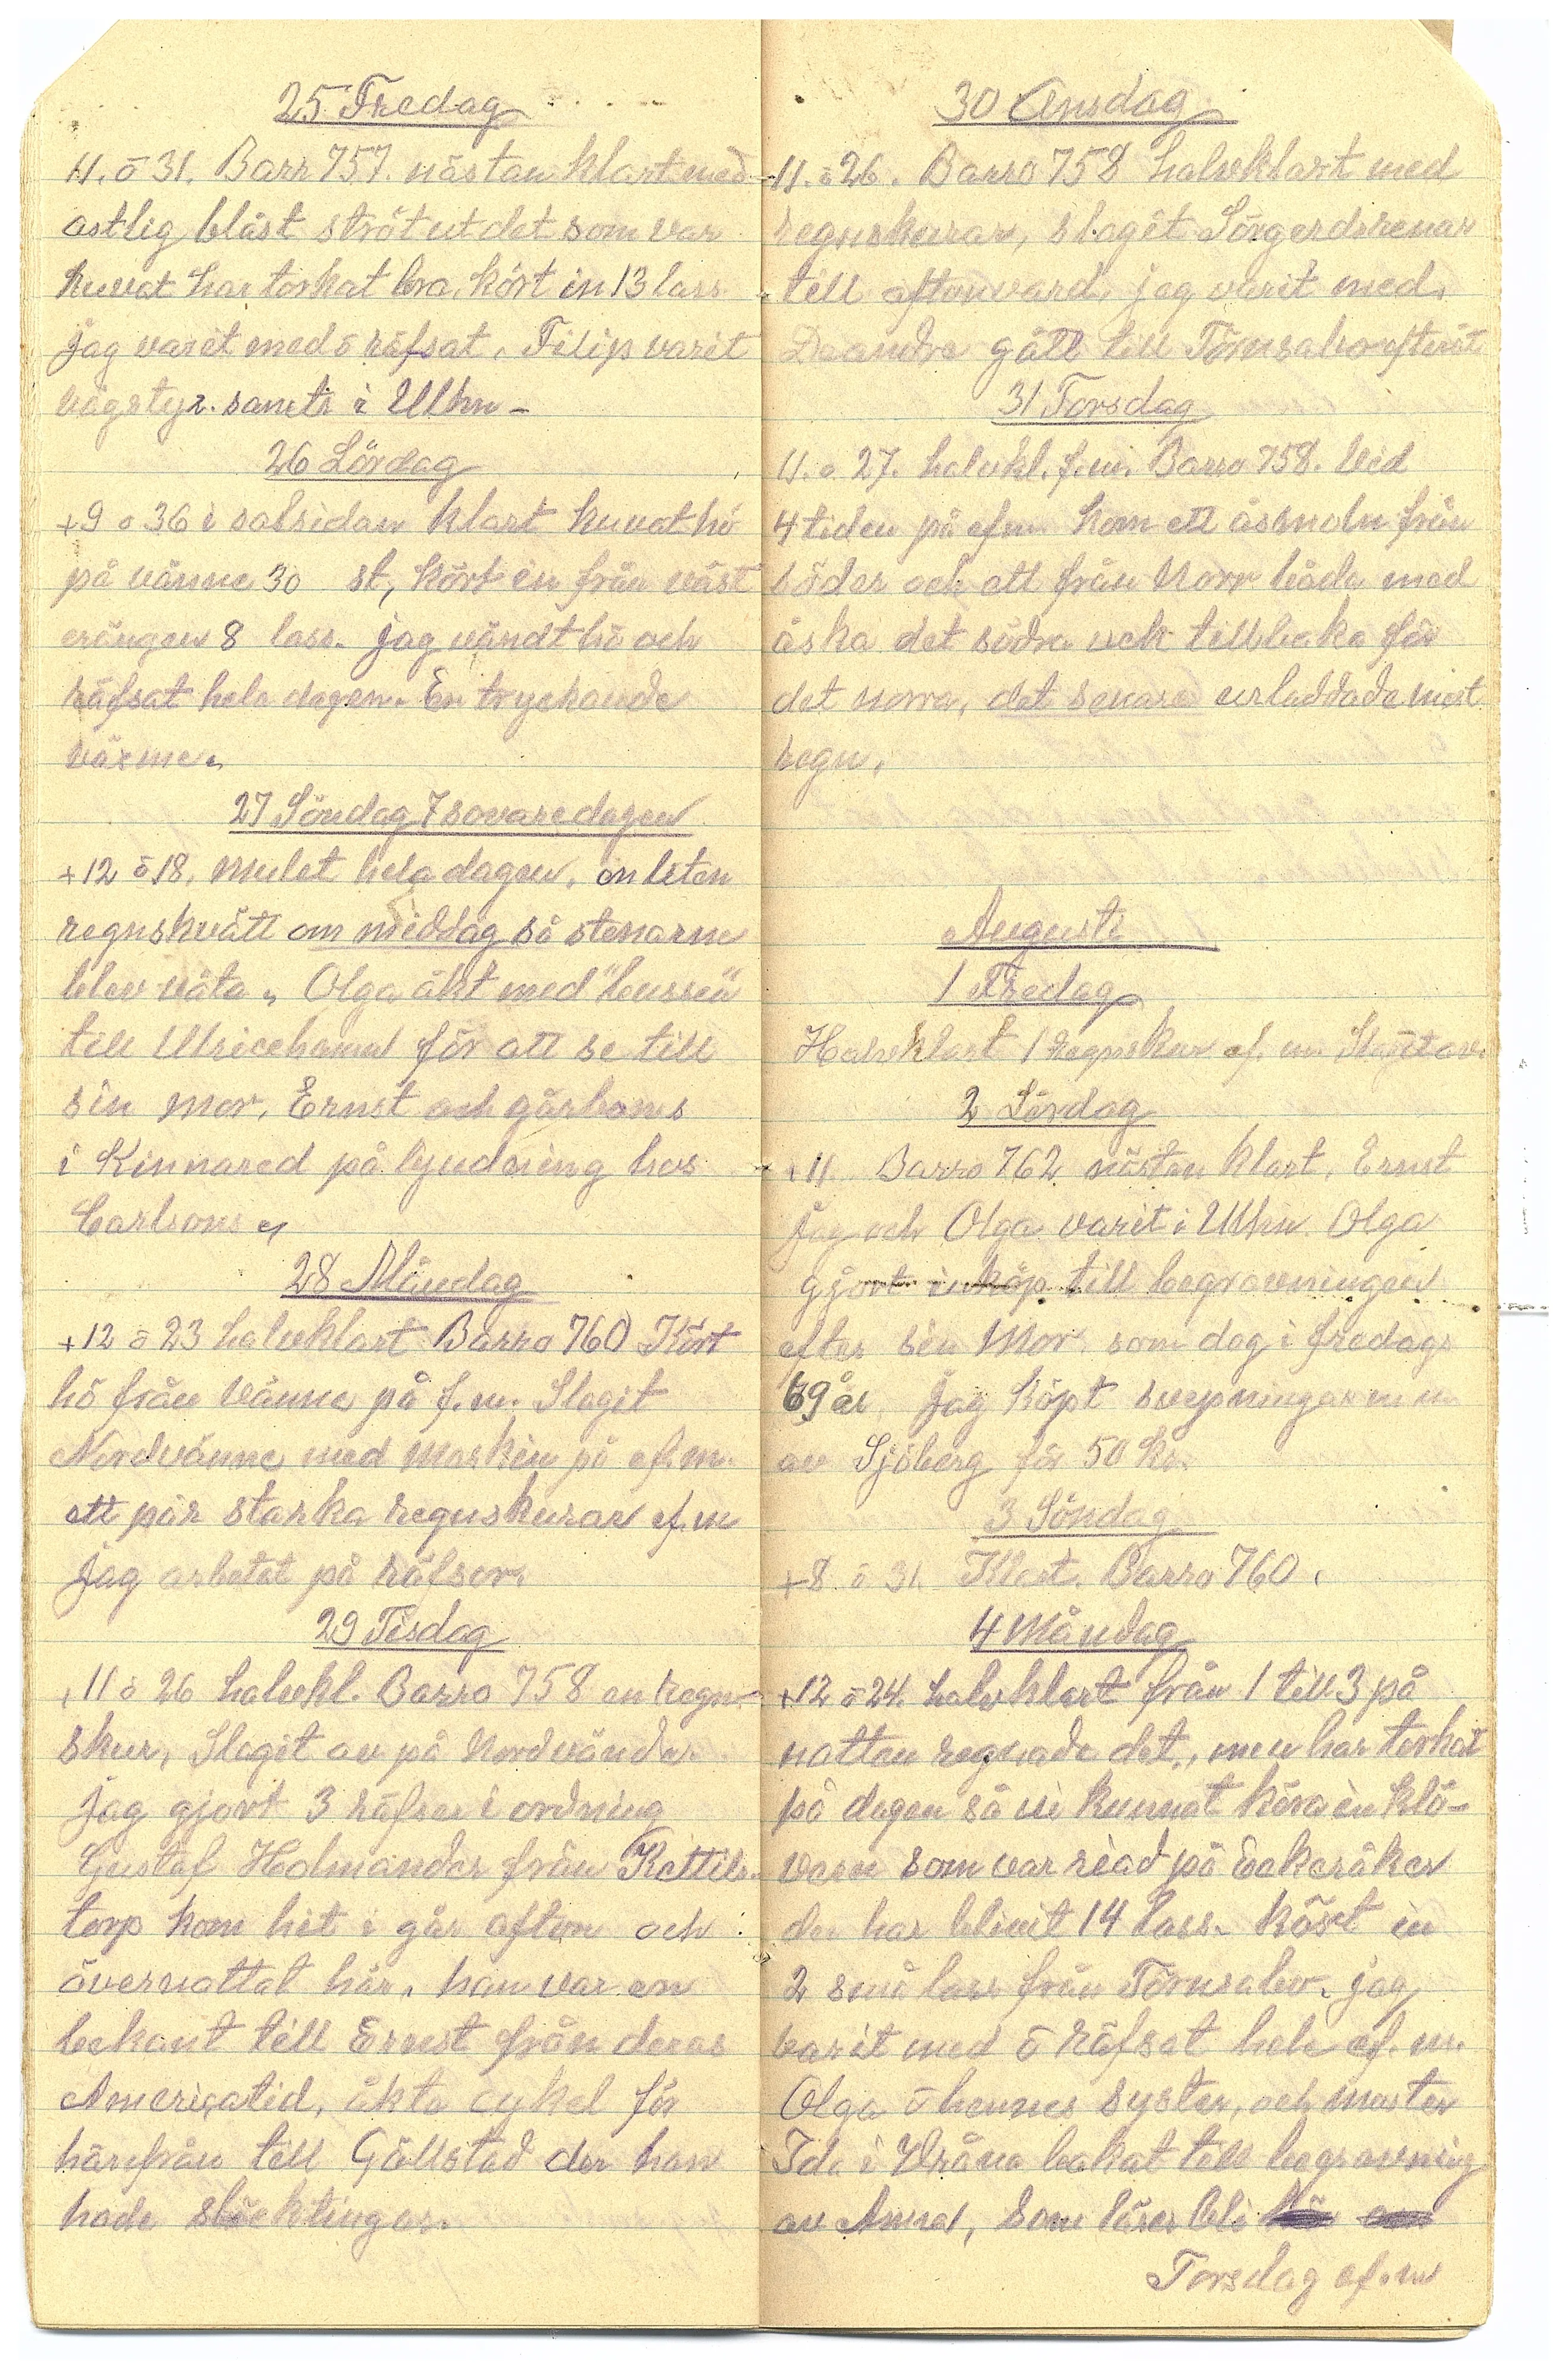 25 Fredag
11. ö 31. Barr 757. nästan klart med
ostlig blåst ströt ut det som var
kuvat har torkat bra, kört in 13 lass
jag varit med ö räfsat, Filip varit
vägstyr. samtr i Ulhn -
26 Lördag
+9 ö 36 i solsidan klart kuvat hö
på vänne 30 st, kört in från väst
erängen 8 lass. jag vändt hö och
räfsat hela dagen. En tryckande
värme.
27 Söndag 7 sovaredagen
+12 ö 18, mulet hela dagen, en liten
regnskvätt om middag så stenarne
blev våta. Olga åkt med "bussen"
till Ulricehamn för att se till
sin mor, Ernst och gårhans
i Kinnared på bjudning hos
Carlsons.
28 Måndag
+12 ö 23 halvklart Barro 760 Kört
hö från vänne på f.m. Slagit
Nordvänne med maskin på ef.m.
ett pär starka regnskurar ef.m
jag arbetat på räfsor.
29 Tisdag
+11 ö 26 halvkl. Barro 758 en regn-
skur, Slagit av på Nordvändar
jag gjort 3 räfsor i ordning
Gustaf Holmander från Kettils-
torp kom hit i går afton och
övernattat här, han var en
bekant till Ernst från deras
Amerigatid, åkte cykel för
härifrån till Gällstad der han
hade släcktingar.
30 Onsdag
11. ö 26. Barro 758 halvklart med
regnskurar, slagit Sörgerdsrenar
till aftonvard, jag varit med.
De andra gått till Törnsabo efteråt
31 Torsdag
11. ö 27. halvkl. f.m. Barro 758. Vid
4 tiden på efm kom ett åsmoln från
söder och ett från Norr båda med
åska det södra vek tillbaka för
det norra, det senare urladdade mest
regn.
Augusti
1 Fredag
Halvklart 1 regnskur ef. m Slagit av.
2 Lördag
+11 Barro 762 nästan klart. Ernst
jag och Olga varit i Ulhn Olga
gjort inköp till begravningen
efter sin Mor som dog i fredags
69 år, jag köpt svepningar m m
av Sjöberg för 50 kr.
3 Söndag
+8 ö 31. Klart. Barro 760.
4 Måndag
+12 ö 24. halvklart från 1 till 3 på
natten regnade det, men har torkat
på dagen så vi kunnat köra in klö-
varn som var riad på Eekeråker
der har blivit 14 lass. kört in
2 små lass från Törnsabo. jag
varit med ö räfsat hele ef. m.
Olga ö hennes syster, och moster
Ida i Vråna bakat till begravning
av Anna, Som lärer bli
Torsdag ef.m